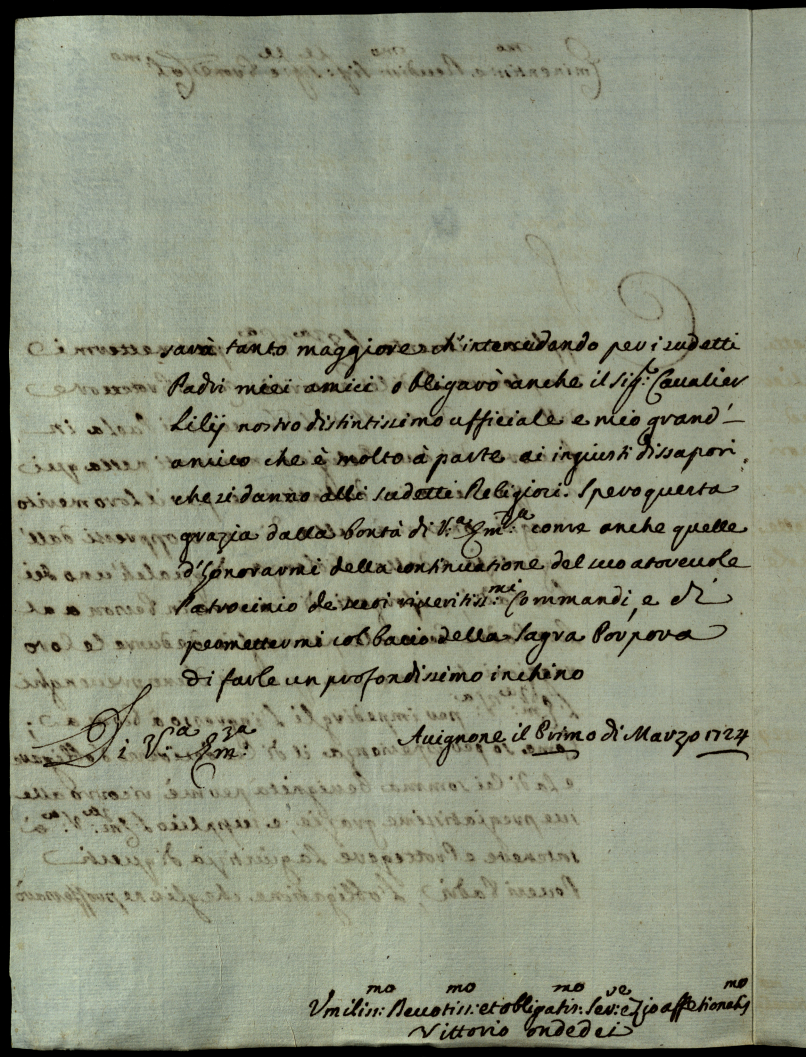 sarà tanto maggiore ch'intercedendo per i sudetti
Padri miei amici obligarò anche il Sig.re Cavalier
Lilij nostro distintissimo ufficiale e mio grand'
amico che è molto à parte ai ingiusti dissapori,
che si danno alli sudetti Religiosi. Spero questa
grazia dalla bontà di V.ra Em.za come anche quelle
d'honorarmi della continuatione del suo
Patrocinio de suoi riveritiss.mi Commandi, e di
permettermi col bacio della Sagra Porpora
di farle un profondissimo inchino
Di V.a Em.za
Avignone il Primo di Marzo 1724
Vmiliss.mo Devotiss.mo et obligatiss.mo Ser.re e
Vittorio Ondedei